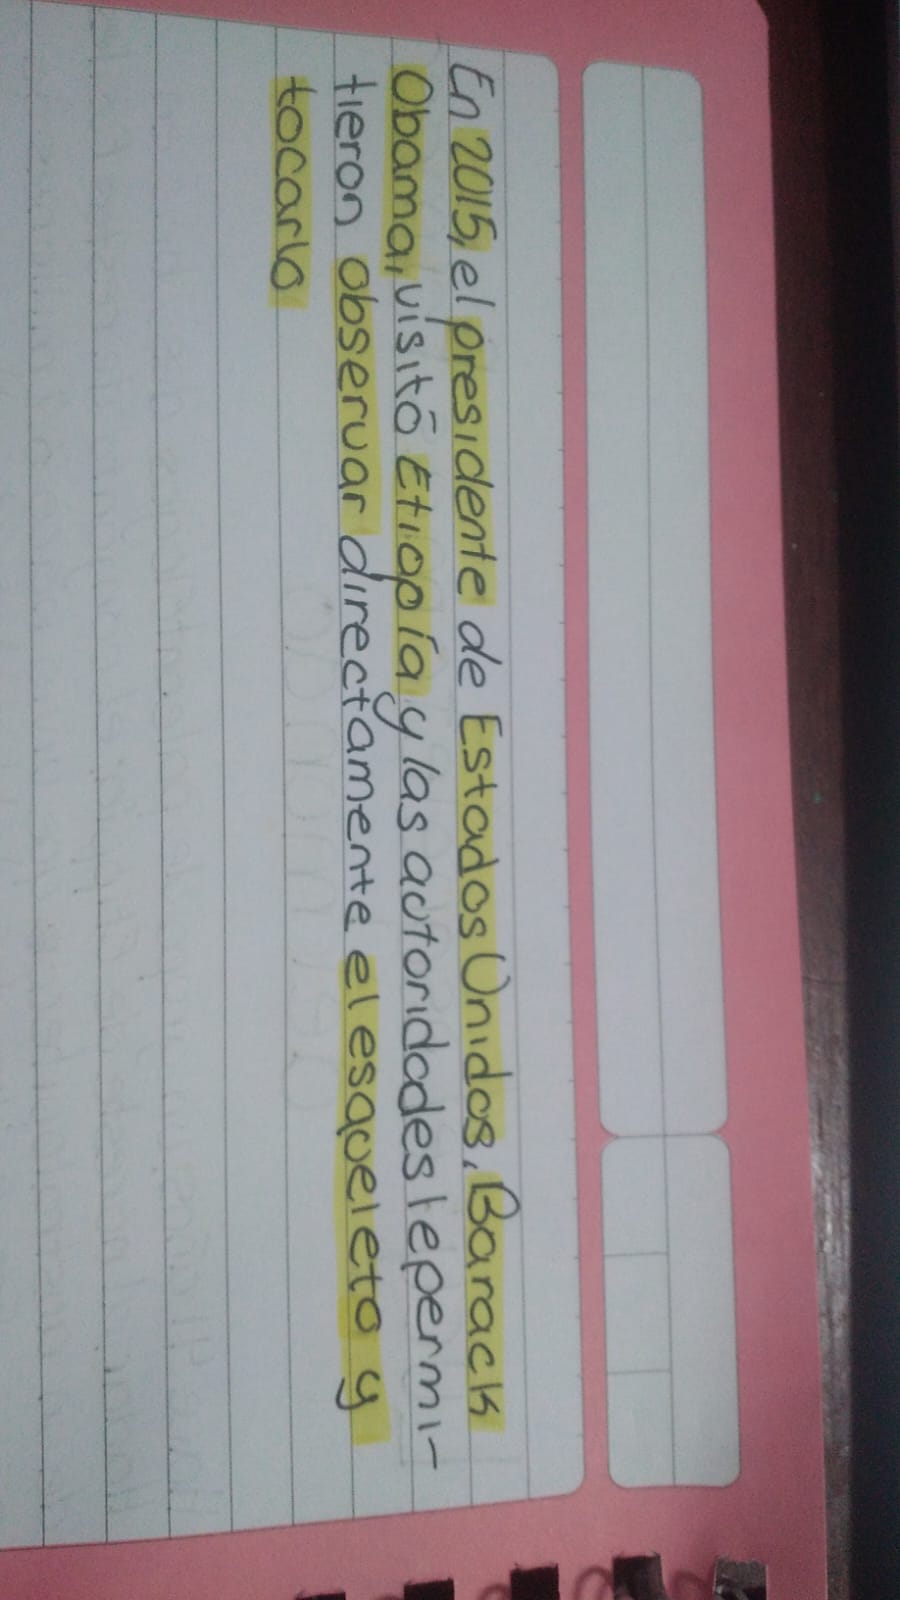 En 2015, el presidente de Estados Unidos, Barack
Obama, visitó Etiopía y las autoridades le permi-
tieron observar directamente el esqueleto y
tocarlo